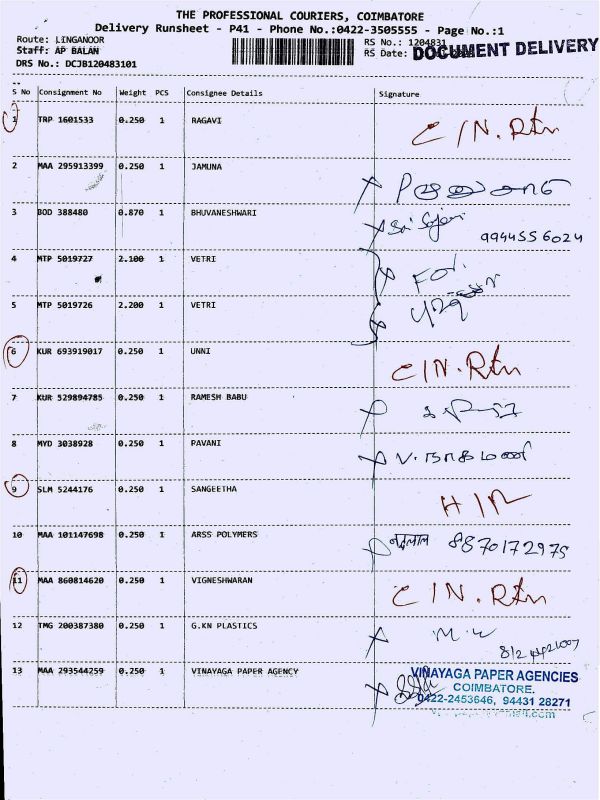 THE PROFESSIONAL COURIERS, COIMBATORE
Delivery Runsheet - P41 - Phone No.:0422-3505555 - Page No.:1
Route: LINGANOOR
Staff: AP BALAN
DRS No.: DCJB120483101
RS No.: 1204831
RS Date:
DOCUMENT DELIVERY
S No Consignment No Weight PCS Consignee Details Signature
1 TRP 1601533 0.250 1 RAGAVI C/N. Rtn
2 MAA 295913399 0.250 1 JAMUNA
3 BOD 388480 0.870 1 BHUVANESHWARI 9944556024
4 MTP 5019727 2.100 1 VETRI For
5 MTP 5019726 2.200 1 VETRI
6 KUR 693919017 0.250 1 UNNI C/N. Rtn
7 KUR 529894785 0.250 1 RAMESH BABU
8 MYD 3038928 0.250 1 PAVANI
9 SLM 5244176 0.250 1 SANGEETHA
10 MAA 101147698 0.250 1 ARSS POLYMERS 8870172975
11 MAA 860814620 0.250 1 VIGNESHWARAN C/N. Rtn
12 TMG 200387380 0.250 1 G.KN PLASTICS
13 MAA 293544259 0.250 1 VINAYAGA PAPER AGENCY
VINAYAGA PAPER AGENCIES
COIMBATORE.
0422-2453646, 94431 28271